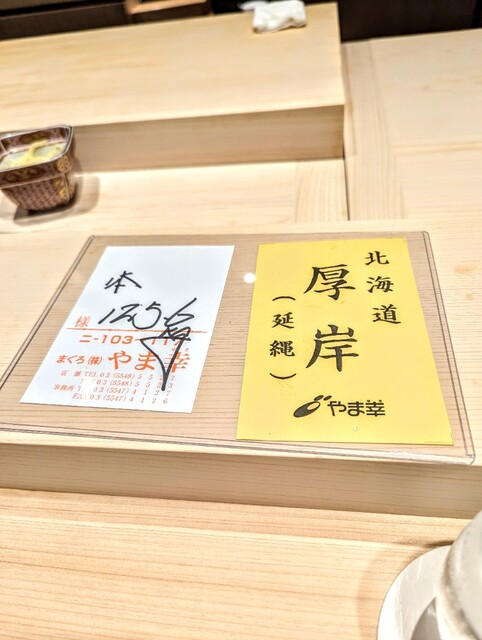 本
125.6
様
ニ-103-
まぐろ(株)やま幸
店舗TEL03(5548)5
03(5548)5
事務所T 03(5547)4122
FAX 03(5547)4126
北海道
厚岸
(延縄)
やま幸